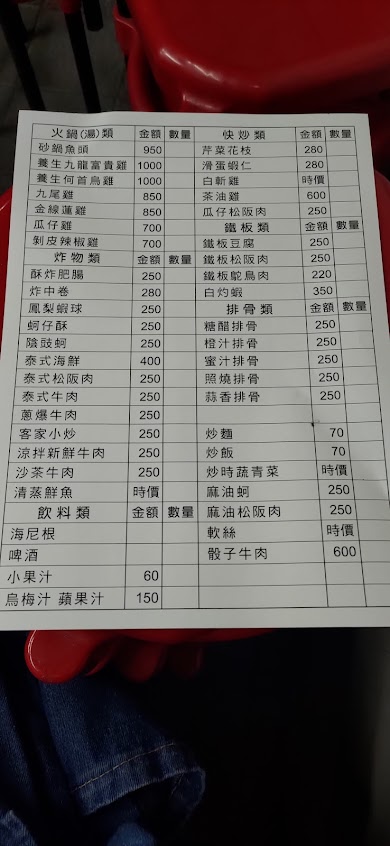 火鍋(湯)類 金額 數量 快炒類 金額 數量
砂鍋魚頭 950 芹菜花枝 280
養生九龍富貴雞 1000 滑蛋蝦仁 280
養生何首烏雞 1000 白斬雞 時價
九尾雞 850 茶油雞 600
金線蓮雞 850 瓜仔松阪肉 250
瓜仔雞 700 鐵板類 金額 數量
剝皮辣椒雞 700 鐵板豆腐 250
炸物類 金額 數量 鐵板松阪肉 250
酥炸肥腸 250 鐵板鴕鳥肉 220
炸中卷 280 白灼蝦 350
鳳梨蝦球 250 排骨類 金額 數量
蚵仔酥 250 糖醋排骨 250
陰豉蚵 250 橙汁排骨 250
泰式海鮮 400 蜜汁排骨 250
泰式松阪肉 250 照燒排骨 250
泰式牛肉 250 蒜香排骨 250
蔥爆牛肉 250
客家小炒 250 炒麵 70
涼拌新鮮牛肉 250 炒飯 70
沙茶牛肉 250 炒時蔬青菜 時價
清蒸鮮魚 時價 麻油蚵 250
飲料類 金額 數量 麻油松阪肉 250
海尼根 軟絲 時價
啤酒 骰子牛肉 600
小果汁 60
烏梅汁 蘋果汁 150